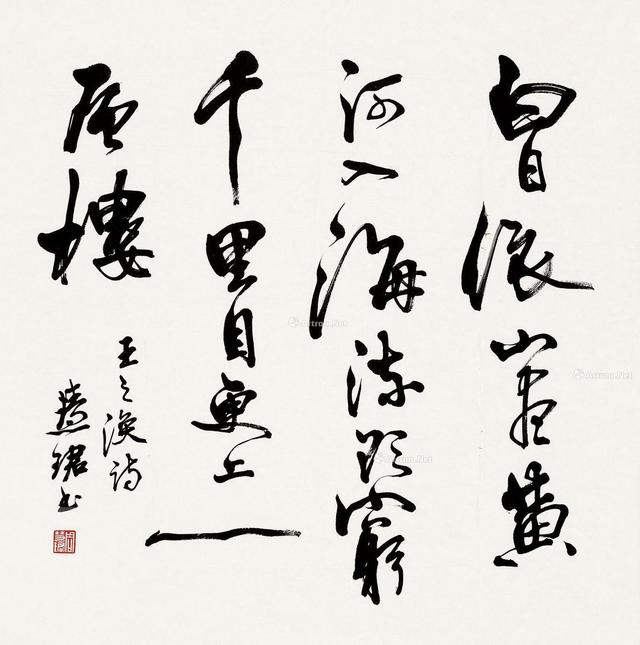 白日依山盡黄
河入海流欲窮
千里目更上一
層樓
王之渙詩
慧珺书
Artron.Net
Artron.Net
Artron.Net